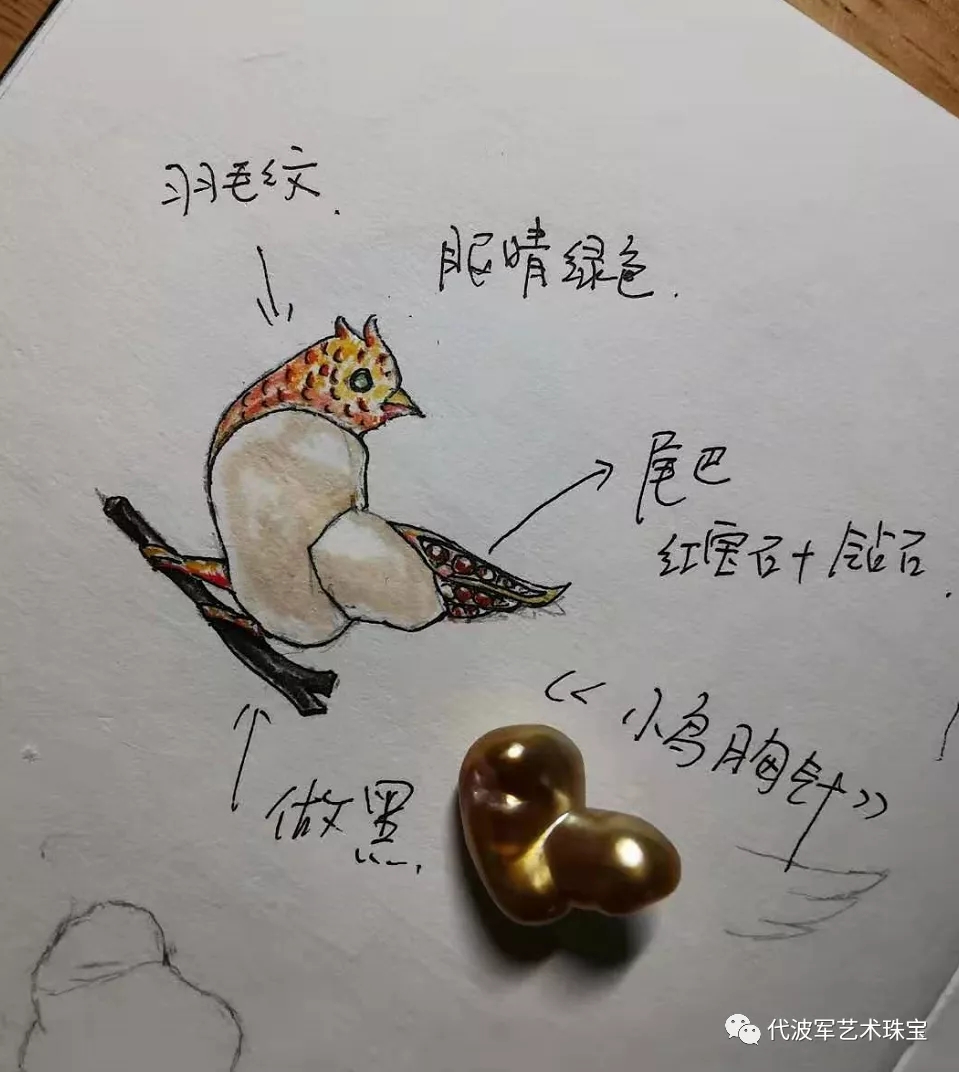 羽毛纹.
眼睛绿色.
尾巴
红宝石+钻石.
《小鸟胸针》
做黑.
代波军艺术珠宝